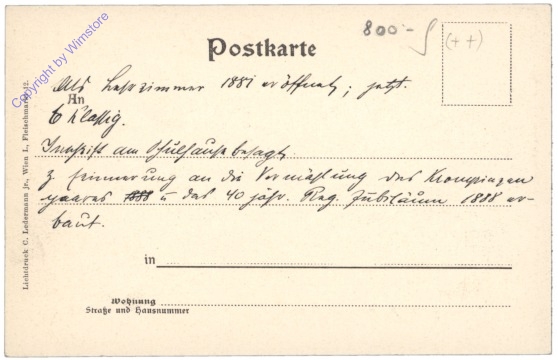 800.-
(++)
Postkarte
Als Lehrzimmer 1881 eröffnet; jetzt.
An
6 klassig.
Inschrift am Schulhause besagt,
z. Erinnerung an die Vermählung des Kronprinzen
paares 1888 u das 40 jähr. Reg. Jubiläum 1888 er-
baut.
in
Wohnung
Straße und Hausnummer
Lichtdruck C. Ledermann jr., Wien I., Fleischmarkt 12.
Copyright by Wimstore